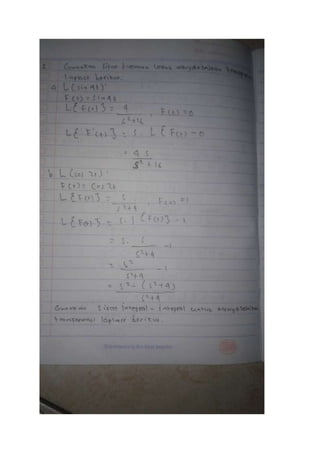 Gunakan Sifat turunan untuk menyelesaikan
laplace berikut.
a. L (sin 4t)'
F(t) = sin 4t
L{F(t)} = 4 / s²+16 , F(0) = 0
L{F'(t)} = s. L{F(t) - 0
= 4 s / s² + 16
b. L (cos 2t)'
F(t) = Cos 2t
L{F(t)} = s / s²+4 , F(0) =1
L{F(t)} = s. L{F(t)} - 1
= s. s / s²+4 - 1
= s² / s²+4 - 1
= s² - (s²+4) / s²+4
Gunakan Sifat Integral - Integral untuk menyelesaikan
transformasi laplace berikut.